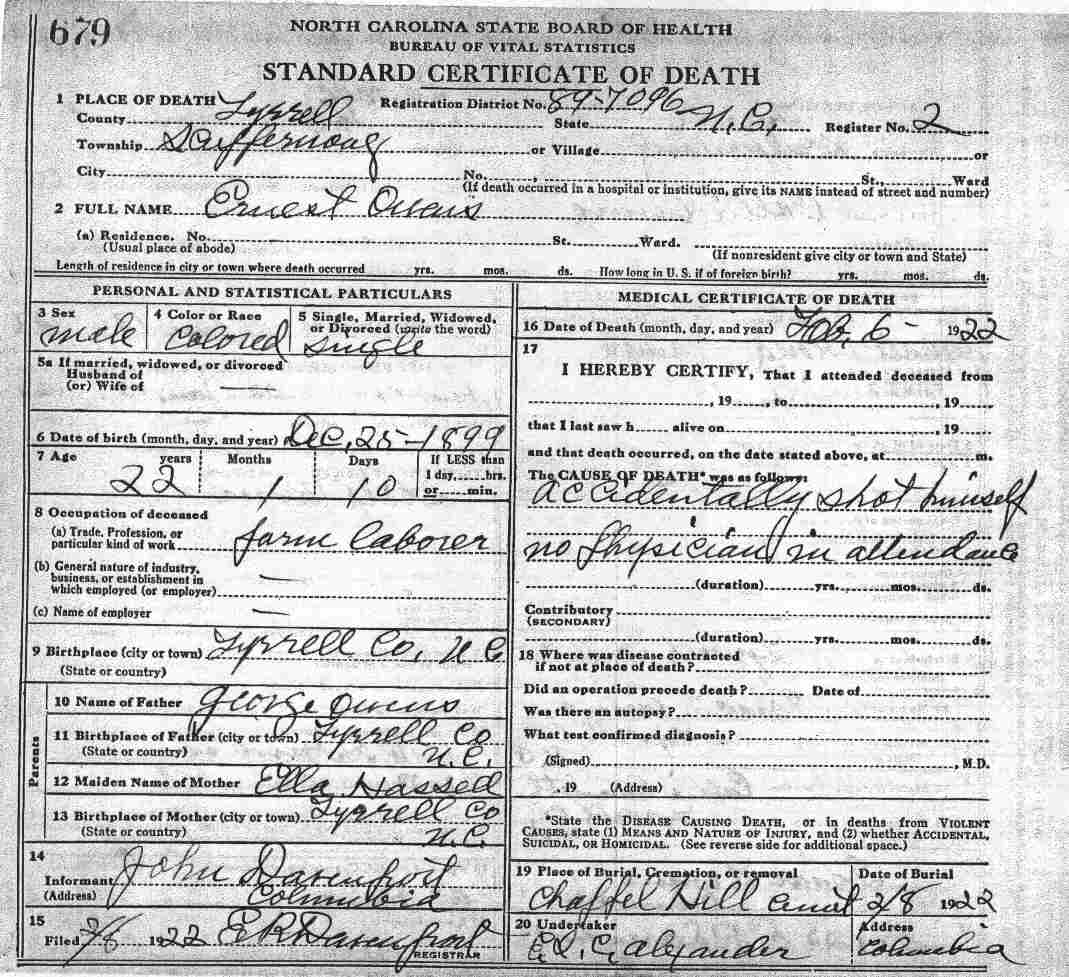 679
NORTH CAROLINA STATE BOARD OF HEALTH
BUREAU OF VITAL STATISTICS
STANDARD CERTIFICATE OF DEATH
1 PLACE OF DEATH Registration District No. 89-7096
County Tyrrell State N.C. Register No. 2
Township Scuppernong or Village or
City No. , St., Ward
(If death occurred in a hospital or institution, give its NAME instead of street and number)
2 FULL NAME Ernest Owens
(a) Residence. No. St. Ward.
(Usual place of abode) (If nonresident give city or town and State)
Length of residence in city or town where death occurred yrs. mos. ds. How long in U. S. if of foreign birth? yrs. mos. ds.
PERSONAL AND STATISTICAL PARTICULARS
3 Sex 4 Color or Race 5 Single, Married, Widowed,
or Divorced (write the word)
male colored single
5a If married, widowed, or divorced
Husband of
(or) Wife of —
6 Date of birth (month, day, and year) Dec, 25-1899
7 Age years Months Days If LESS than
1 day, hrs.
or min.
22 1 10
8 Occupation of deceased
(a) Trade, Profession, or
particular kind of work farm laborer
(b) General nature of industry,
business, or establishment in
which employed (or employer) —
(c) Name of employer —
9 Birthplace (city or town) Tyrrell Co, N C
(State or country)
Parents
10 Name of Father George Owens
11 Birthplace of Father (city or town) Tyrrell Co
(State or country) N.C.
12 Maiden Name of Mother Ella Hassell
13 Birthplace of Mother (city or town) Tyrrell Co
(State or country) N.C.
14
Informant John Davenport
(Address) Columbia
15
Filed 2/8 1922 E R Davenport
REGISTRAR
MEDICAL CERTIFICATE OF DEATH
16 Date of Death (month, day, and year) Feb, 6- 1922
17
I HEREBY CERTIFY, That I attended deceased from
, 19 , to , 19
that I last saw h alive on , 19
and that death occurred, on the date stated above, at m.
The CAUSE OF DEATH* was as follows:
accidentally shot himself
no physician in attendance
(duration) yrs. mos. ds.
Contributory
(SECONDARY)
(duration) yrs. mos. ds.
18 Where was disease contracted
if not at place of death?
Did an operation precede death? Date of
Was there an autopsy?
What test confirmed diagnosis?
(Signed) , M.D.
, 19 (Address)
*State the DISEASE CAUSING DEATH, or in deaths from VIOLENT
CAUSES, state (1) MEANS AND NATURE OF INJURY, and (2) whether ACCIDENTAL,
SUICIDAL, OR HOMICIDAL. (See reverse side for additional space.)
19 Place of Burial, Cremation, or removal Date of Burial
Chappel Hill 2/8 1922
20 Undertaker Address
Alexander Columbia